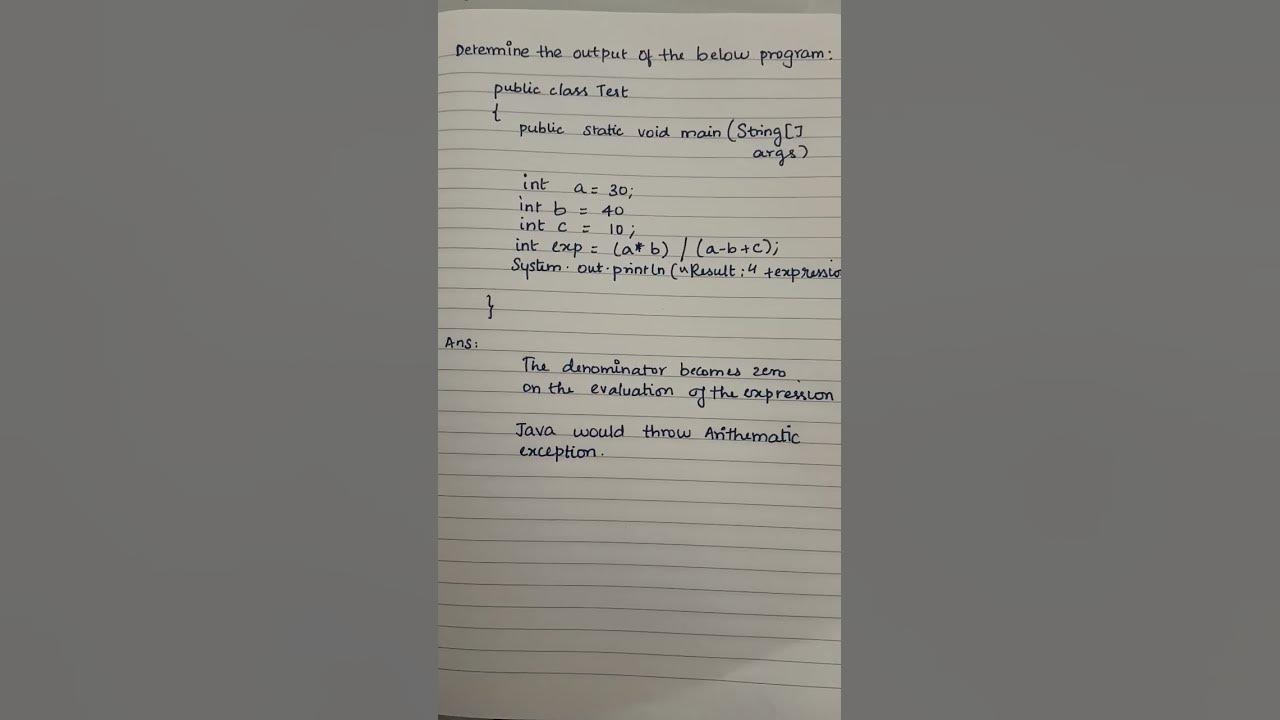 Determine the output of the below program:
public class Test
{
public static void main (String[]
args)
int a = 30;
int b = 40
int c = 10;
int exp = (a* b) / (a-b+c);
System.out.println ("Result:" +expressio
}
Ans:
The denominator becomes zero
on the evaluation of the expression
Java would throw Arithematic
exception.